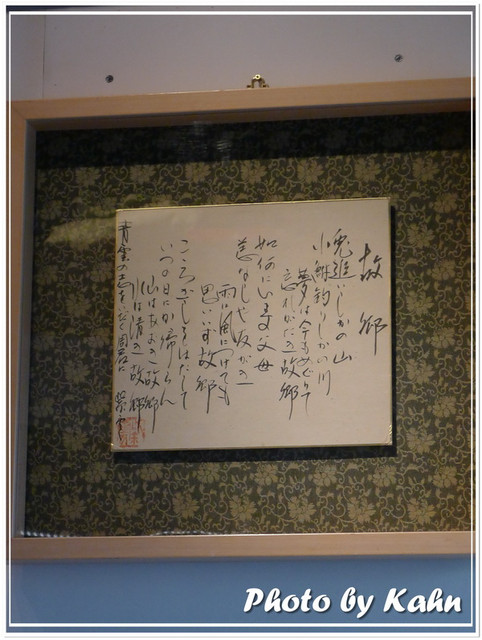 故郷
兎追いしかの山
小鮒釣りしかの川
夢は今もめぐりて
忘れがたき故郷
如何にいます父母
恙なしや友がき
雨に風につけても
思いいず故郷
こころざしをはたして
いつの日にか帰らん
山はあおき故郷
水は清き故郷
青雲の志をいだく
Photo by Kahn